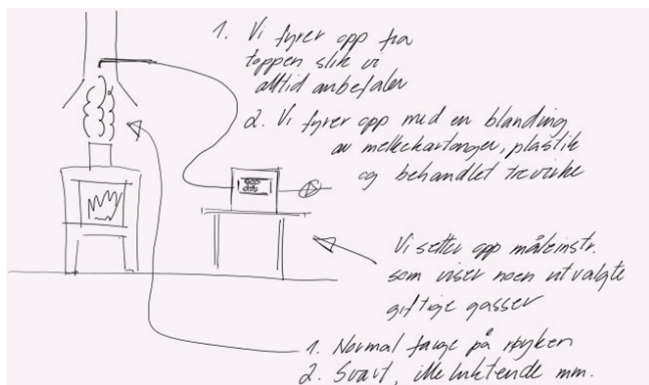 1. Vi fyrer opp fra
toppen slik vi
alltid anbefaler
2. Vi fyrer opp med en blanding
av melkekartonger, plastik
og behandlet trevirke
Vi setter opp måleinstr.
som viser noen utvalgte
giftige gasser
1. Normal farge på røyken
2. Svart, illeluktende mm.